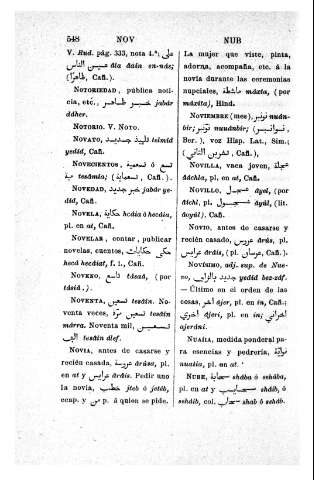 548 NOV NUB
V. Rud. pag. 333, nota 4.ª; على
عيـن الناس âla ðain en-nás;
(ظاهرًا, Cañ.).
NOTORIEDAD, pública noti-
cia, etc., خبر ظاهر jabár
ddher.
NOTORIO. V. NOTO.
NOVATO, تلميذ جديد telmid
yedid, Cañ.
NOVECIENTOS, تسع
مية tesámia; (تسعماية, Cañ.).
NOVEDAD, خبر جديد jabár ye-
did, Cañ.
NOVELA, حكاية hcáia ó hecáia,
pl. en at, Cañ.
NOVELAR, contar, publicar
novelas, cuentos, حكى حكايات
hecá hecáiat, f. i., Cañ.
NOVENO, تاسع tásaâ, (por
tásiâ.)
NOVENTA, تسعين tesâín. No-
venta veces, تسعين مرّة tesâín
márra. Noventa mil, تسعين
الف tesâín álef.
NOVIA, antes de casarse y
recién casada, عروسة ârúsa, pl.
en at y عرايس âráis. Pedir uno
la novia, خطب jteb ó jetéb,
ccap. y من p. á quien se pide.
La mujer que viste, pinta,
adorna, acompaña, etc. á la
novia durante las ceremonias
nupciales, ماشطة máxta, (por
máxita), Hind.
NOVIEMBRE (mes), نونبر nuán-
bir; نوونبر nuuánbir; (نوانبر,
Ber.), voz Hisp. Lat., Sim.;
(تشرين الثاني, Cañ.).
NOVILLA, vaca joven, عجلة
âáchla, pl. en at, Cañ.
NOVILLO, عجل âyel, (por
âichl, pl. عجول âyúl, (lit.
âoyúl). Cañ.
NOVIO, antes de casarse y
recién casado, عروس ârús, pl.
عرايس âráis, (pl. عرسان, Cañ.).
NOVÍSIMO, adj. sup. de Nue-
vo, جديد بالزاف yedid bez-zdf.
—Último en el orden de las
cosas, آخر ájer, pl. en in, Cañ.;
آخري ájeri, pl. en in; أخراني
ajeráni.
NUAÍIA, medida ponderal pa-
ra esencias y pedrería, نواية
nuaíia, pl. en at.
NUBE, سحابة shába ó sehába,
pl. en at y سحايب sháib, ó
seháib, col. سحاب sháb ó seháb.